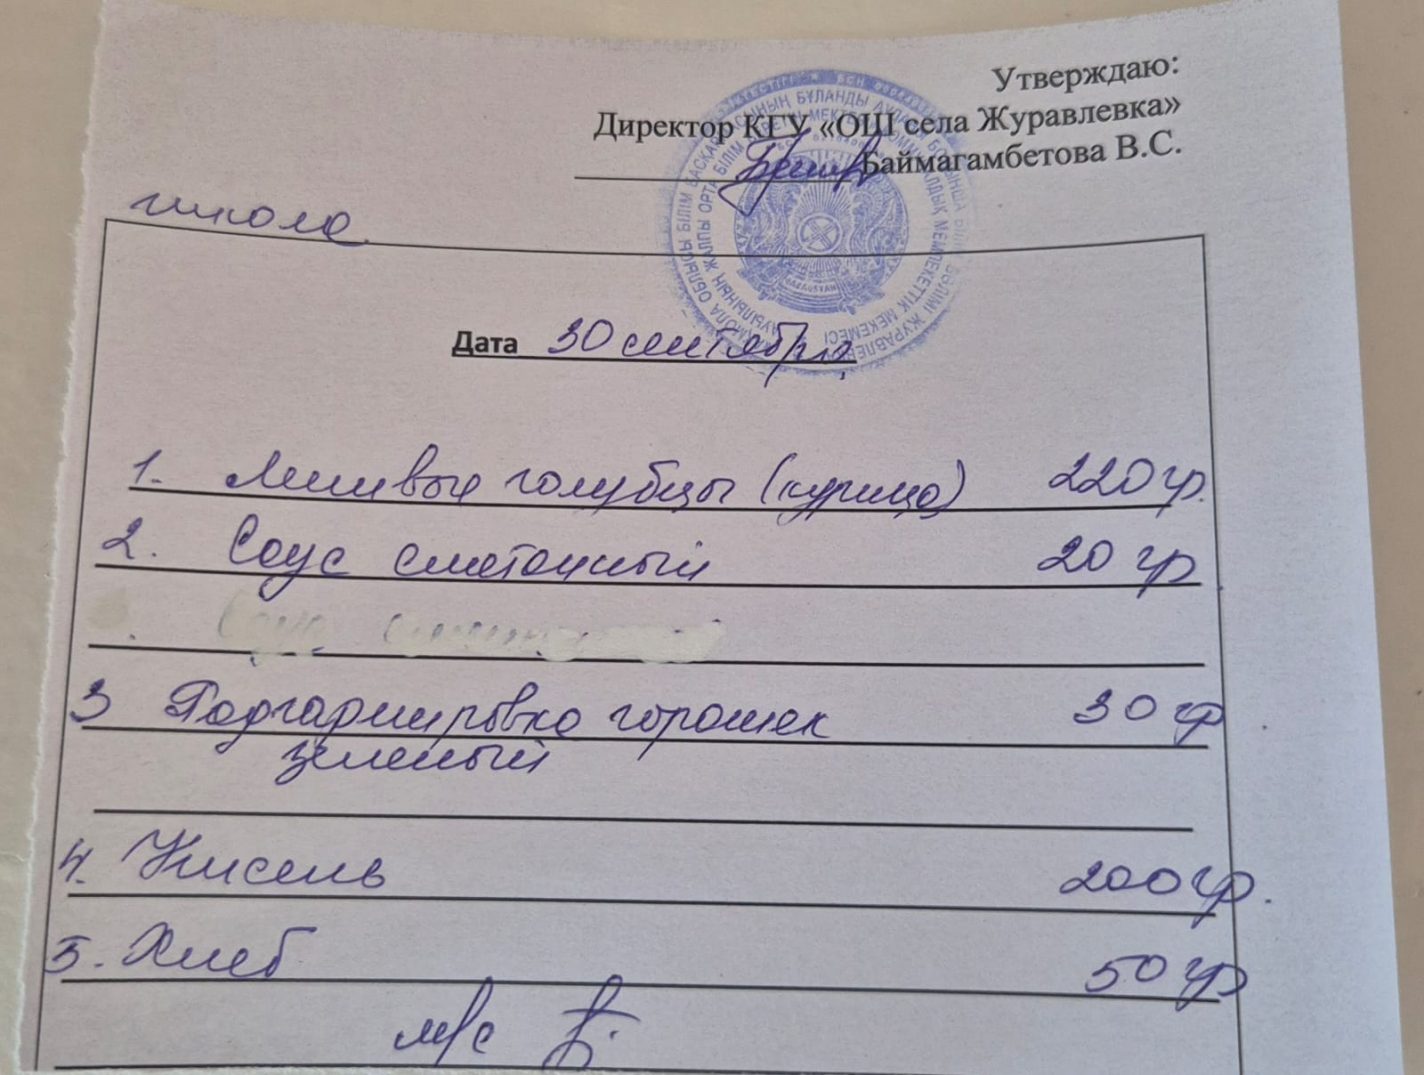 Утверждаю:
Директор КГУ «ОШ села Журавлевка»
Баймагамбетова В.С.
школа
Дата 30 сентября
1. Ленивые голубцы (курица) 220 гр.
2. Соус сметанный 20 гр
3 Подгарнировка горошек 30 гр
зеленый
4. Кисель 200 гр.
5. Хлеб 50 гр
м/с